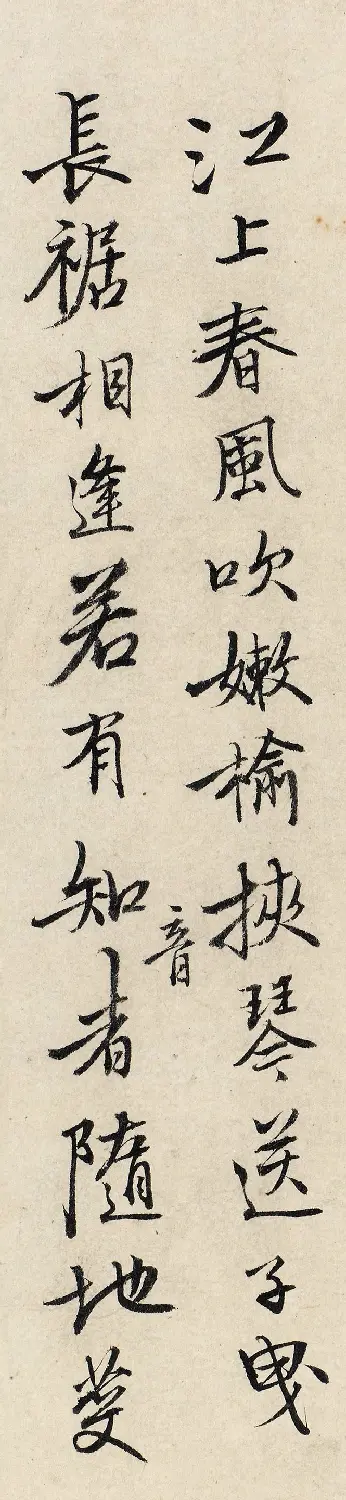 江上春風吹嫩榆挾琴送子曳
長裾相逢若有知音者隨地芟